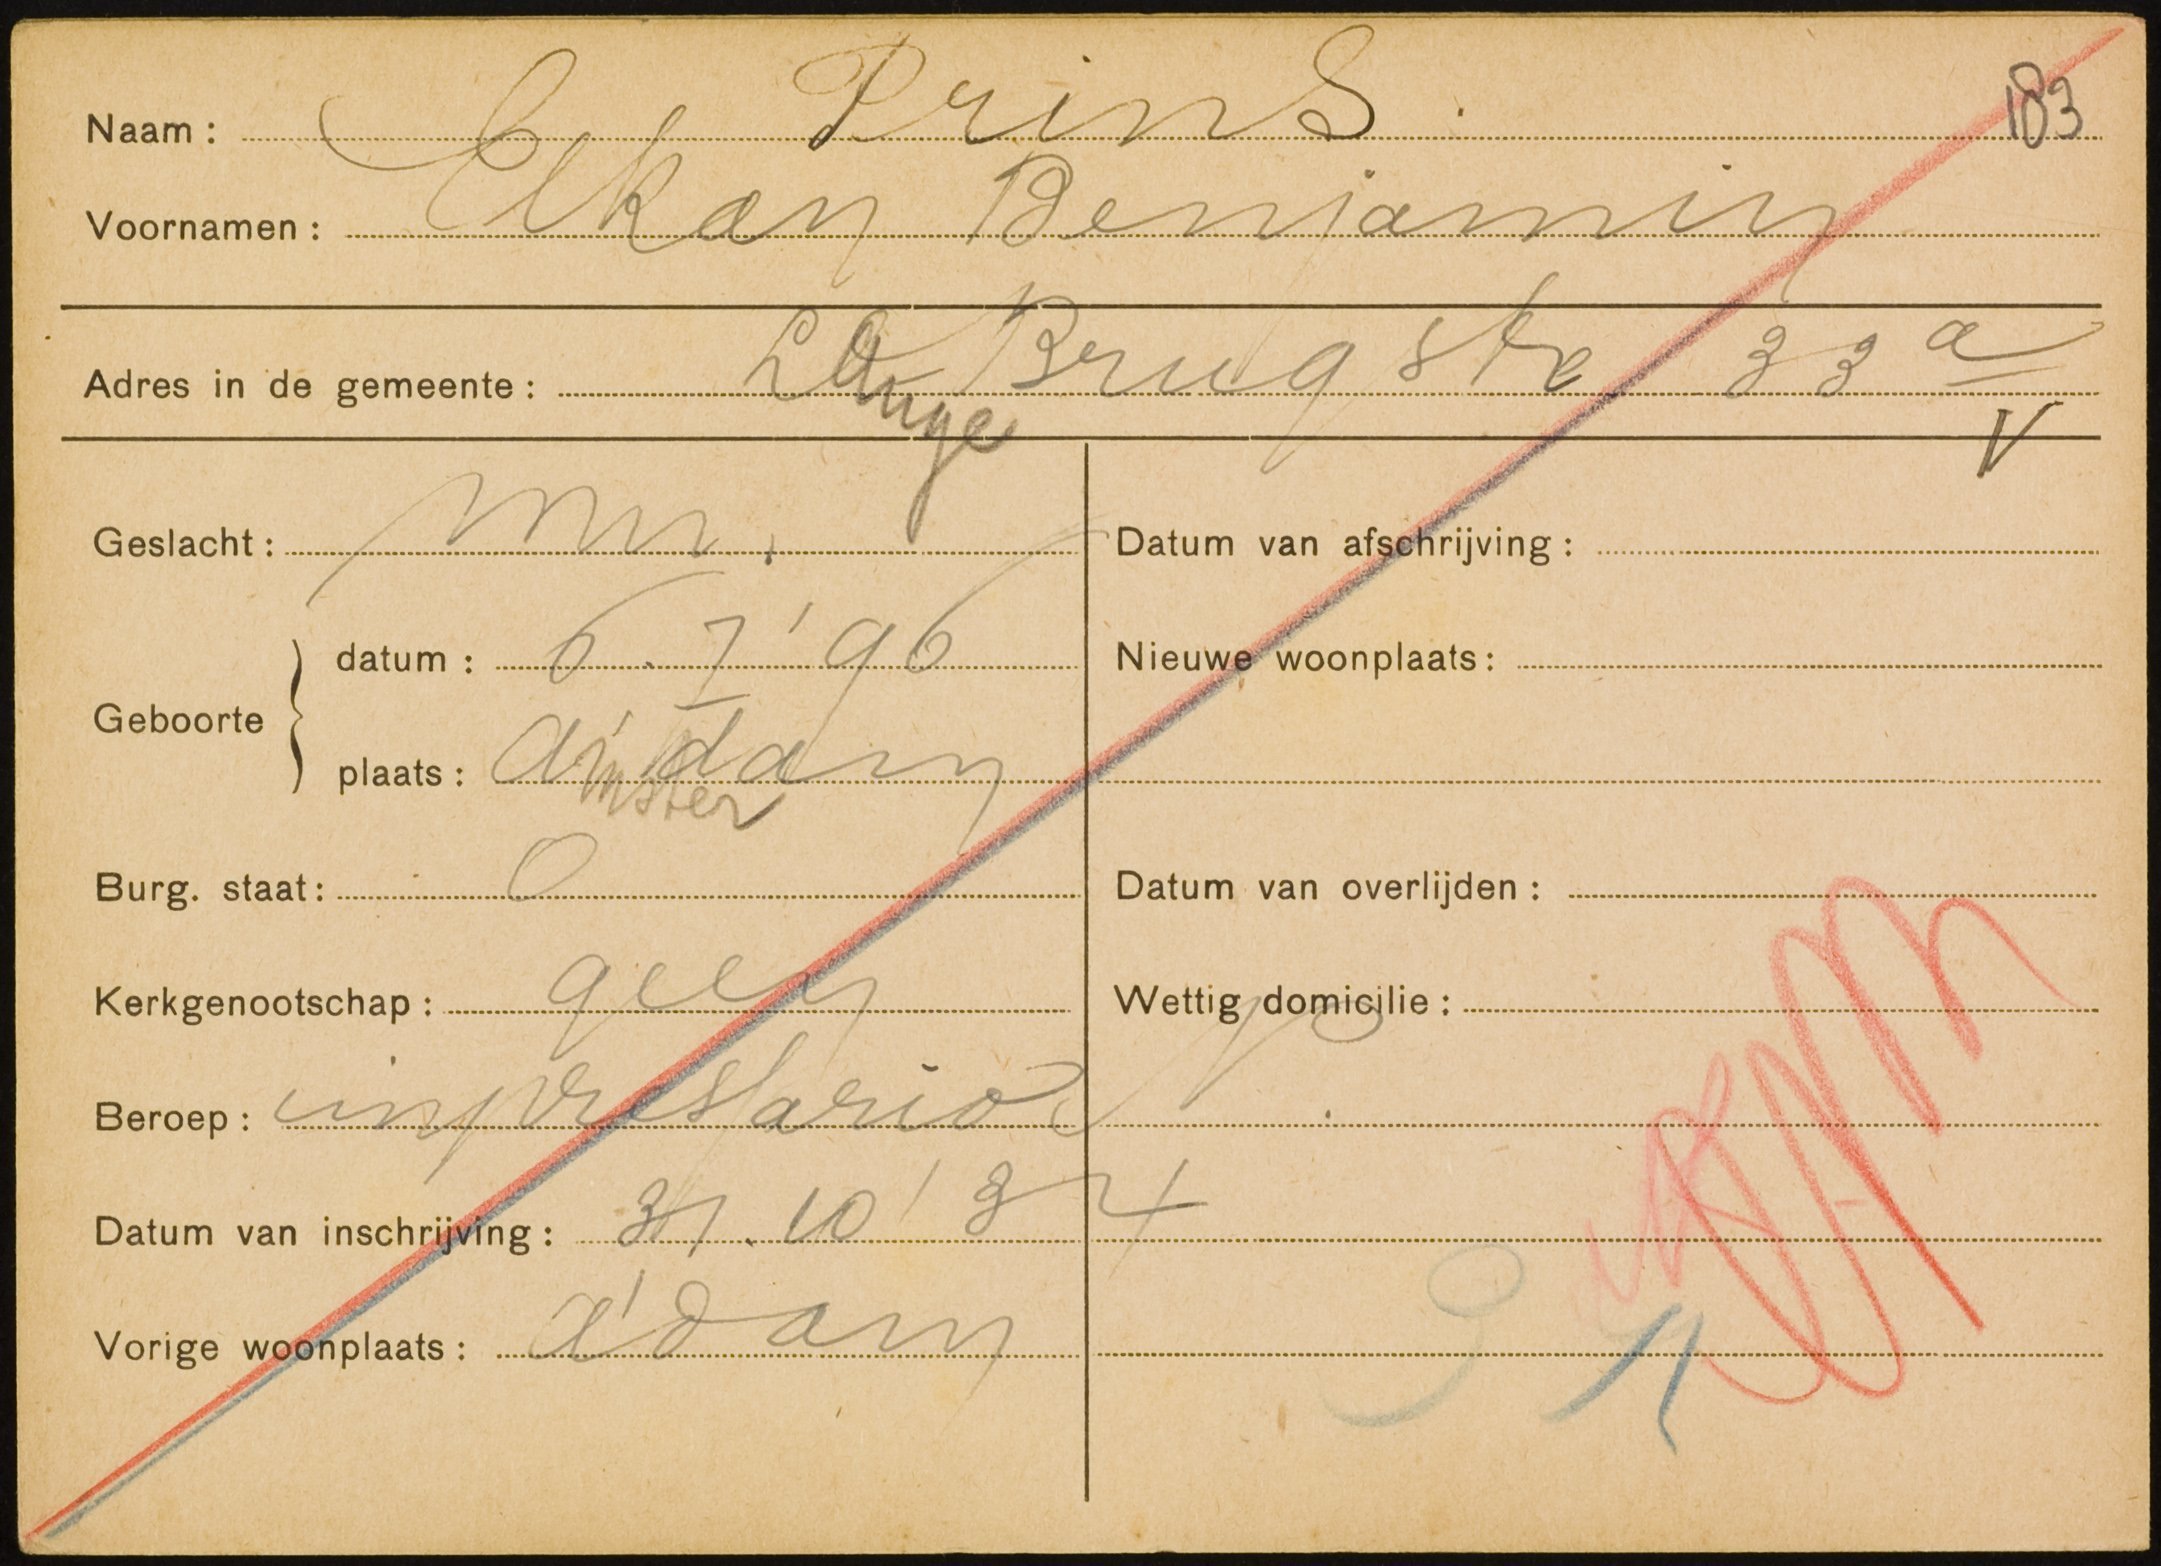 Naam: Prins. 183
Voornamen: Elkan Benjamin
Adres in de gemeente: Lange Brugstr 33 a
V
Geslacht: mn.
Geboorte datum: 6.7'96
plaats: Amsterdam
Burg. staat: O
Kerkgenootschap: geen
Beroep: impressario
Datum van inschrijving: 31.10'34
Vorige woonplaats: A'dam
Datum van afschrijving:
Nieuwe woonplaats:
Datum van overlijden:
Wettig domicilie: